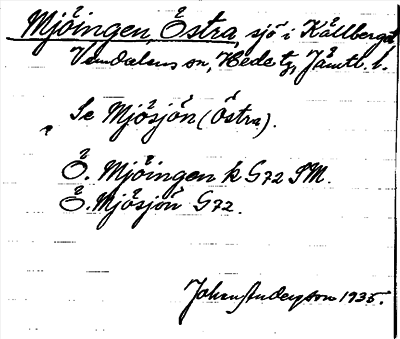 Mjöingen, Östra, sjö i Kållberget
Vemdalens sn, Hede tg, Jämtl. l.
Se Mjösjön (Östra).
Ö. Mjöingen k G72 SM.
Ö. Mjösjön G72.
Johan Anderson 1935.